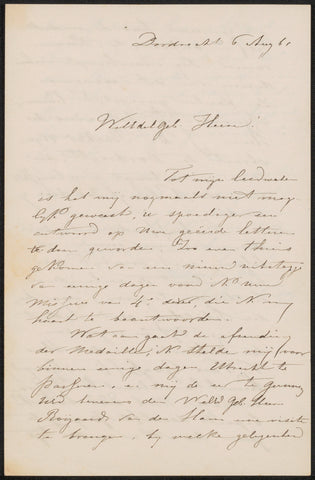 Dordrecht 6 Aug 61
WelEdelGeb. Heer!
Tot mijn leedwezen
is het mij nogmaals niet mog-
geweest, u spoediger een
antwoord op Uwe geëerde letteren
te doen geworden. Zoo even thuis
gekomen van een nieuw uitstapje
van eenige dagen vond ik uwe
Missive van 4. dezer, die ik mij
haast te beantwoorden.
Wat aan gaat de afzending
der Medaille, ik stelde mij voor
binnen eenige dagen Utrecht te
passeren, en mij de eer te geven
den WelEd. Geb. Heer
Royaards van den Ham een visite
te brengen, bij welke gelegenheid